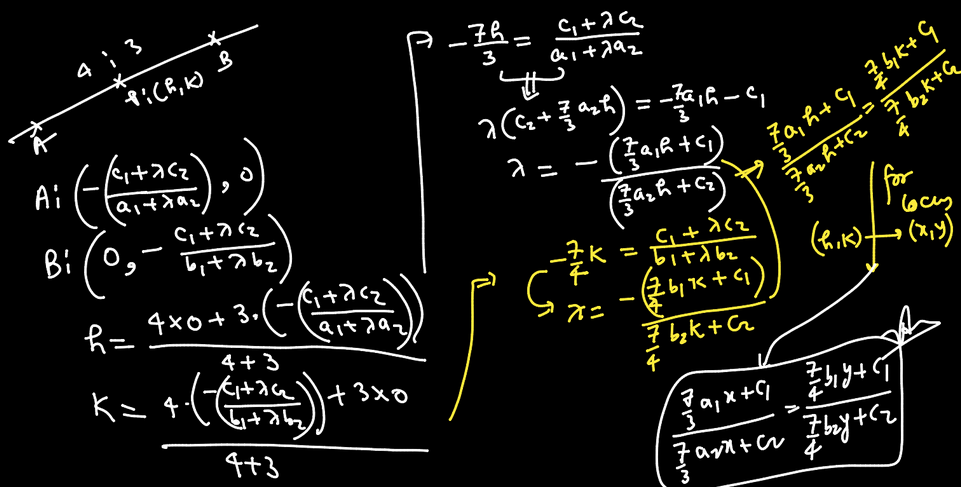 4 : 3
A
P:(h,k)
B
A: (-(c₁+λc₂)/(a₁+λa₂), 0)
B: (0, -(c₁+λc₂)/(b₁+λb₂))
h = (4×0 + 3·(-(c₁+λc₂)/(a₁+λa₂)))/(4+3)
K = (4·(-(c₁+λc₂)/(b₁+λb₂)) + 3×0)/(4+3)
-7h/3 = (c₁+λc₂)/(a₁+λa₂)
λ(c₂ + 7/3 a₂h) = -7/3 a₁h - c₁
λ = -(7/3 a₁h + c₁)/(7/3 a₂h + c₂)
-7/4 k = (c₁+λc₂)/(b₁+λb₂)
λ = -(7/4 b₁k + c₁)/(7/4 b₂k + c₂)
(7/3 a₁h + c₁)/(7/3 a₂h + c₂) = (7/4 b₁k + c₁)/(7/4 b₂k + c₂)
for
locus
(h,k) → (x,y)
(7/3 a₁x + c₁)/(7/3 a₂x + c₂) = (7/4 b₁y + c₁)/(7/4 b₂y + c₂)